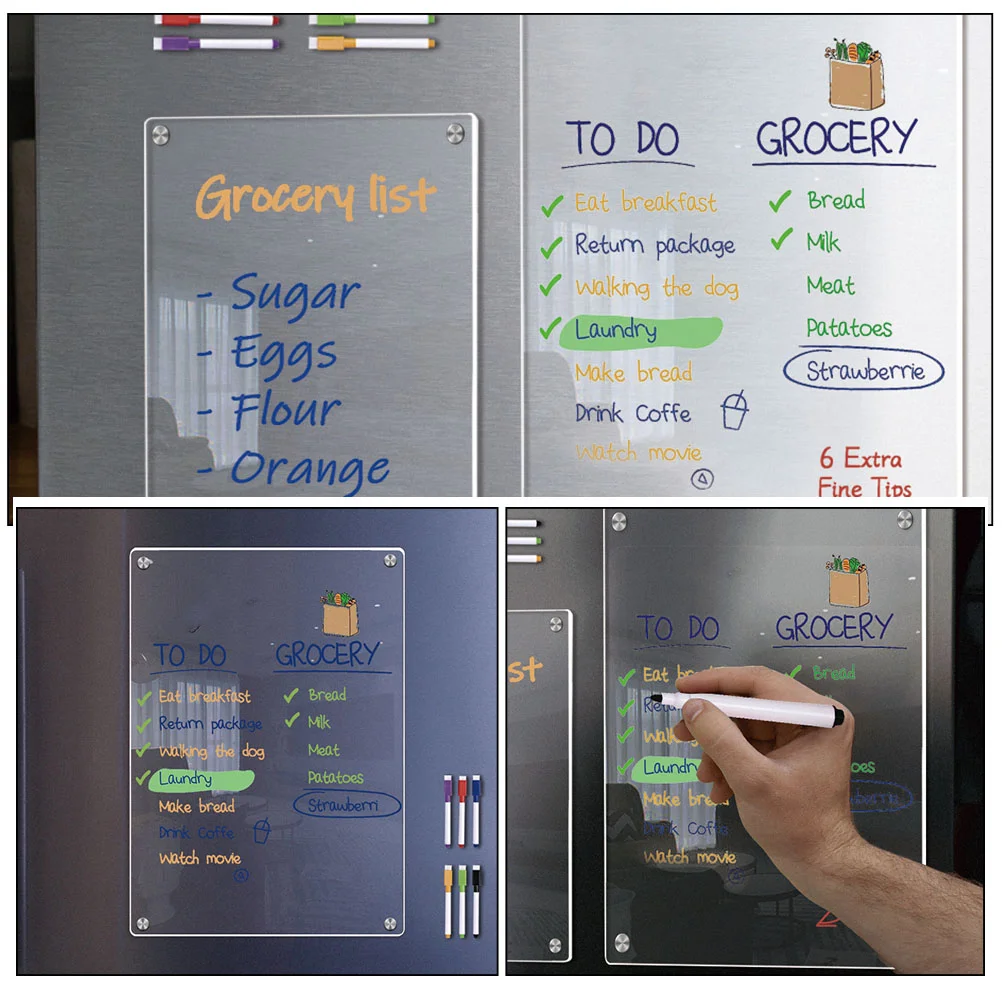 Grocery list
- Sugar
- Eggs
- Flour
- Orange
TO DO
Eat breakfast
Return package
Walking the dog
Laundry
Make bread
Drink Coffe
Watch movie
GROCERY
Bread
Milk
Meat
Patatoes
Strawberrie
6 Extra
Fine Tips
TO DO
Eat breakfast
Return package
Walking the dog
Laundry
Make bread
Drink Coffe
Watch movie
GROCERY
Bread
Milk
Meat
Patatoes
Strawberri
st
TO DO
Eat
Laundr
Make
Drink Coffe
Watch movie
GROCERY
Bread
oes